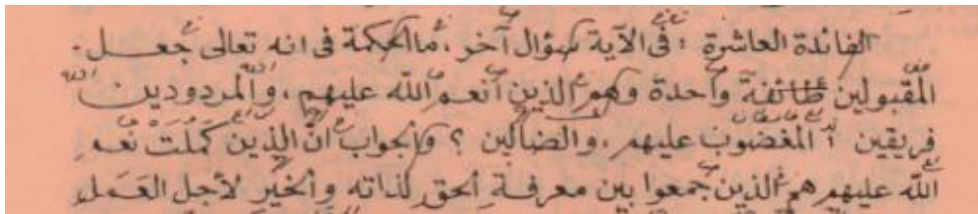 الفائدة العاشرة : فى الآية سؤال آخر ، ما الحكمة فى انه تعالى جعل
المقبولين طائفة واحدة وهم الذين أنعم الله عليهم ، والمردودين
فريقين : المغضوب عليهم ، والضالين ؟ والجواب انّ الذين كملت نعم
الله عليهم هم الذين جمعوا بين معرفة الحق لذاته والخير لأجل العمل